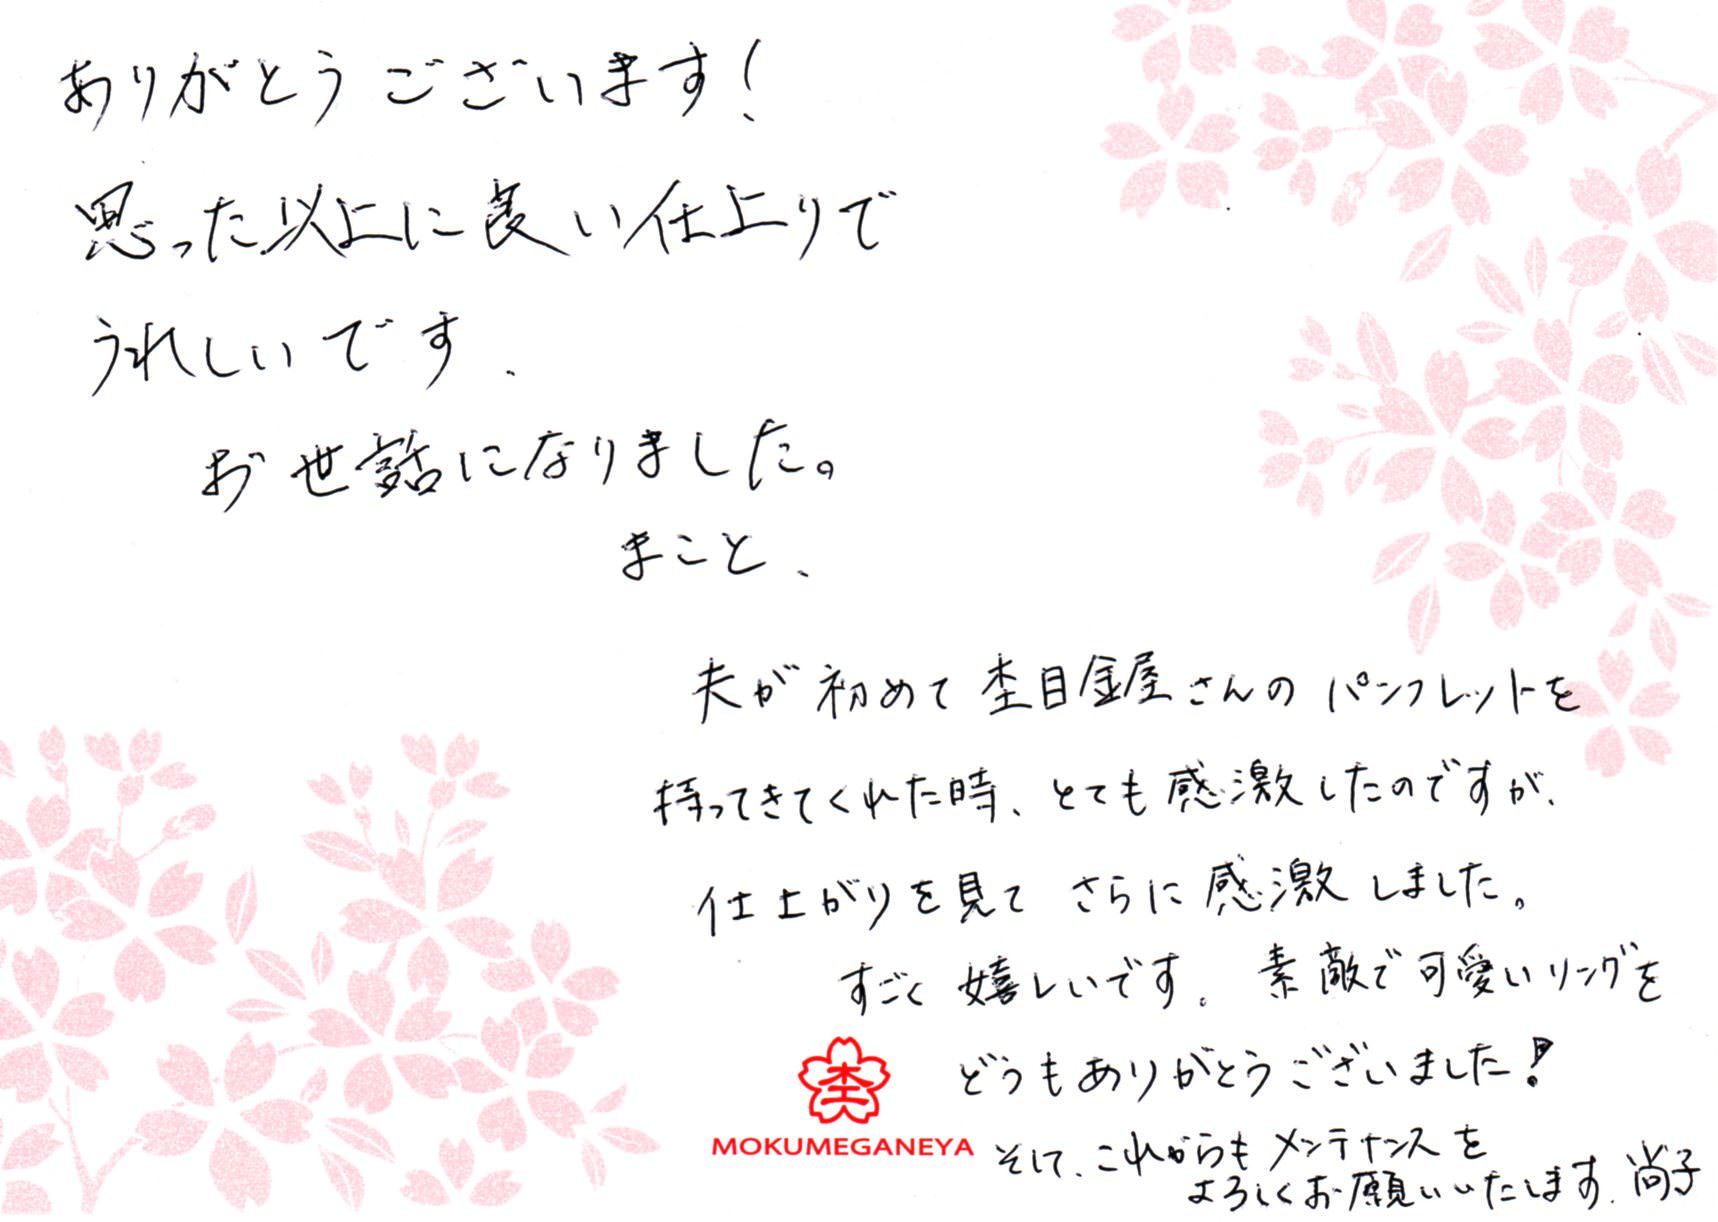 ありがとうございます!
思った以上に良い仕上りで
うれしいです.
お世話になりました。
まこと、
夫が初めて杢目金屋さんのパンフレットを
持ってきてくれた時、とても感激したのですが、
仕上がりを見てさらに感激しました。
すごく嬉しいです。素敵で可愛いリングを
どうもありがとうございました!
そして、これからもメンテナンスを
よろしくお願いいたします. 尚子
杢
MOKUMEGANEYA